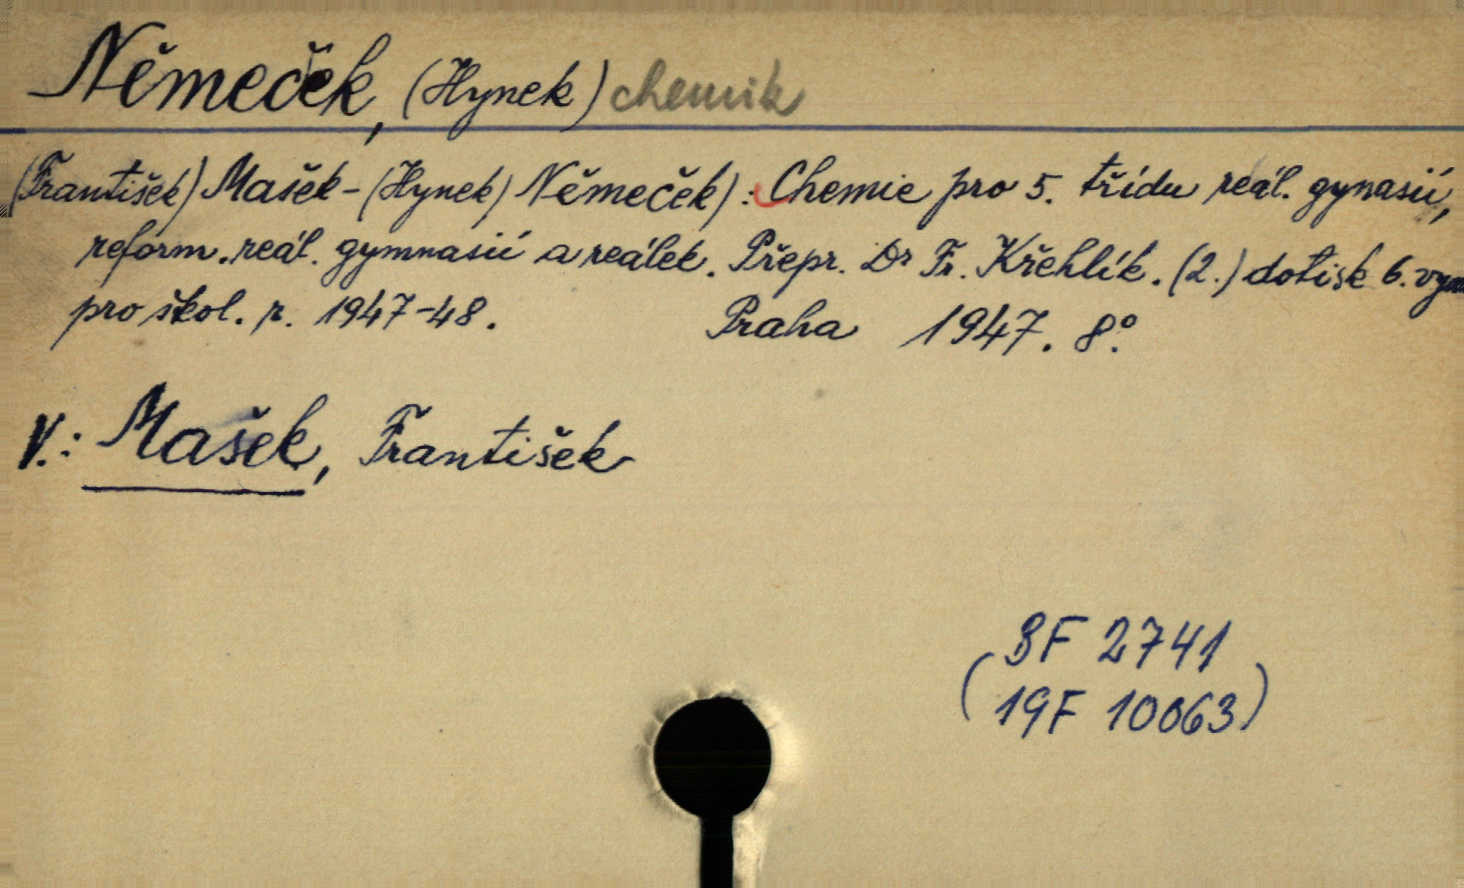 Němeček, (Hynek) chemik
(František) Mašek - (Hynek) Němeček): Chemie pro 5. třídu reál. gynasií,
reform. reál. gymnasií a reálek. Přepr. Dr Fr. Křehlík. (2.) dotisk 6. vyd
pro škol. r. 1947-48. Praha 1947. 8°.
V.: Mašek, František
3F 2741
(19F 10063)